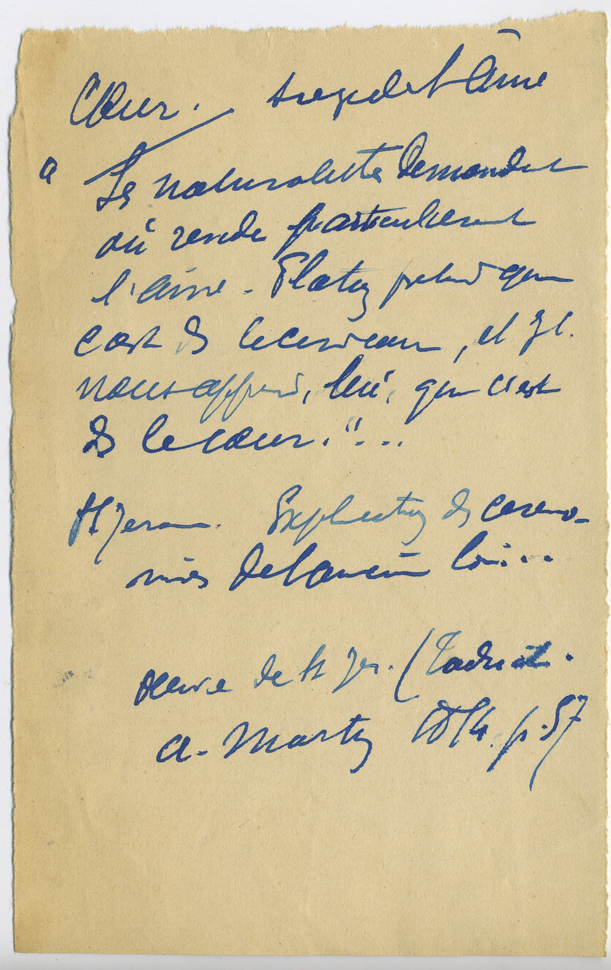 Cœur. siège de l'âme
"Les naturalistes demandent
où réside particulièrement
l'âme - Platon prétend que
c'est ds le cerveau, et J.C.
nous apprend, lui, que c'est
ds le cœur."...
St Jerome. Explication ds cérémo-
nies de l'ancienne loi...
de St Jer. (
a. Marty p. 57